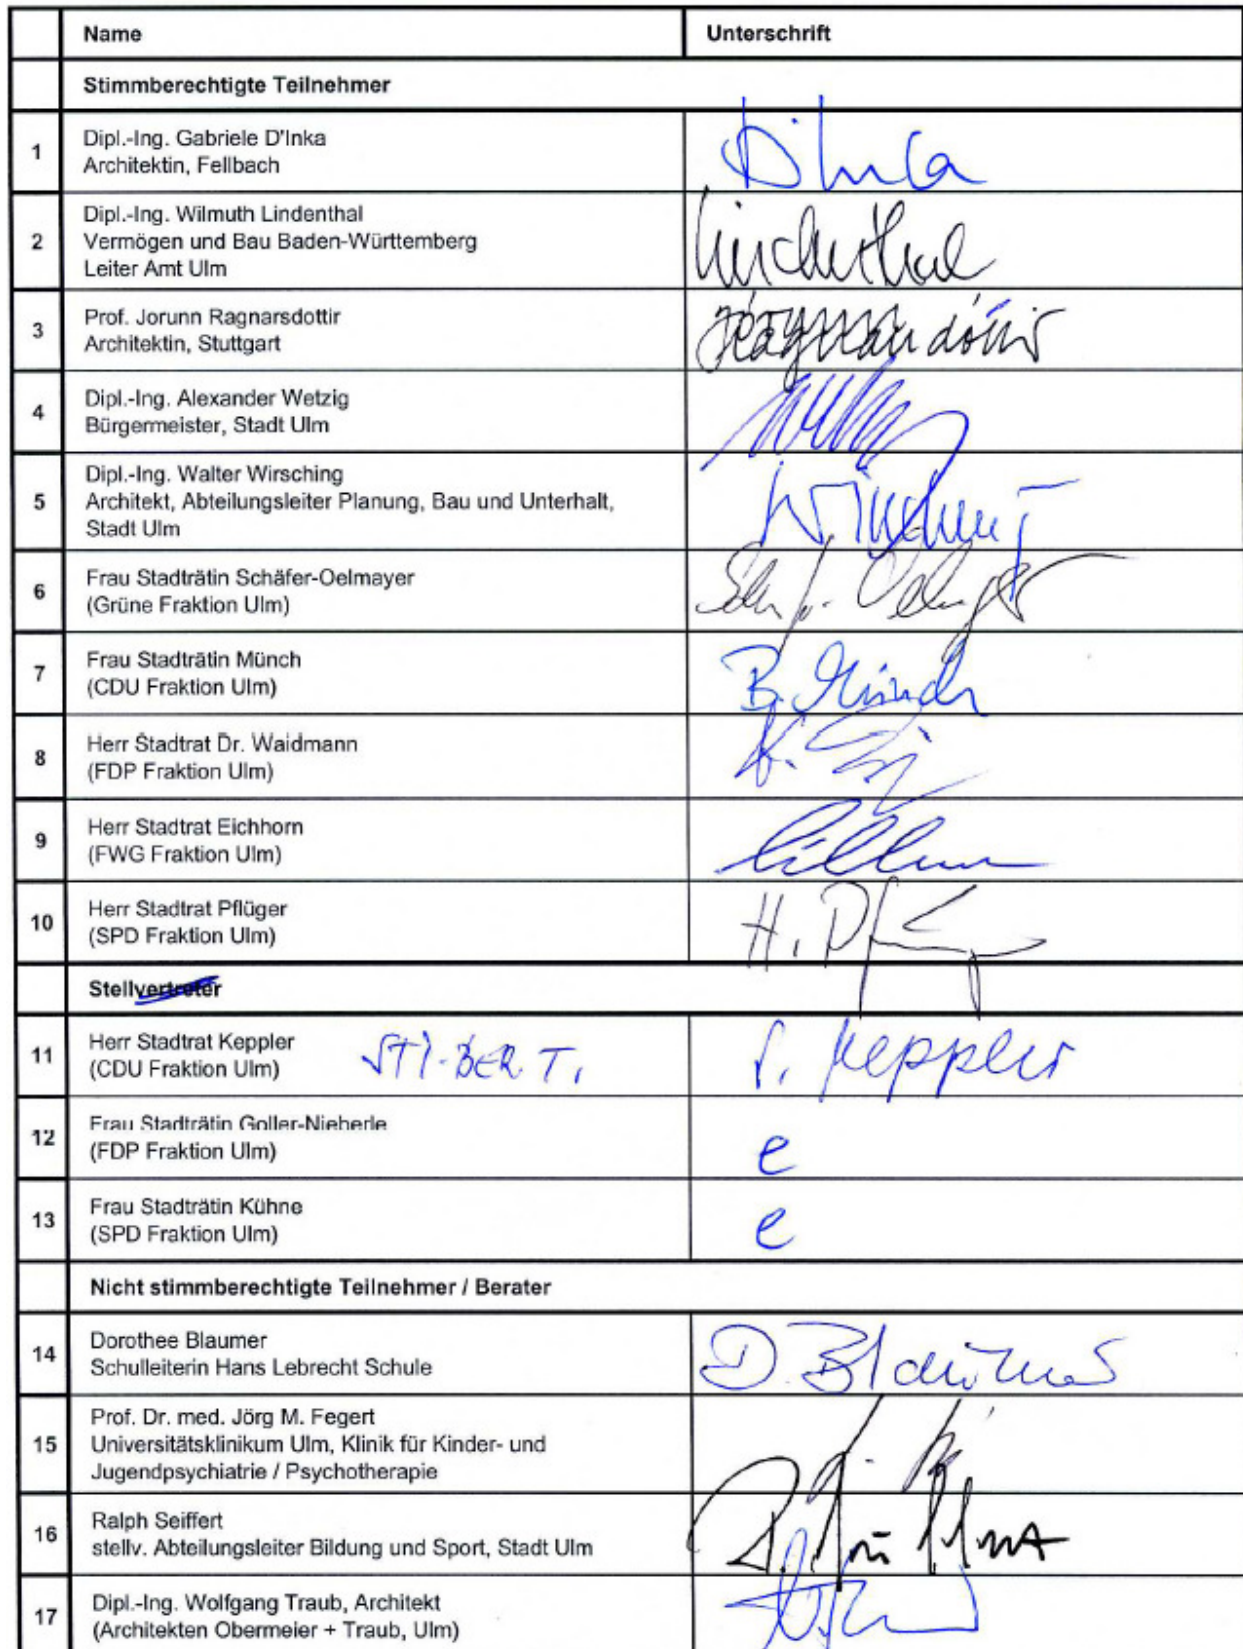 Name Unterschrift
Stimmberechtigte Teilnehmer
1 Dipl.-Ing. Gabriele D'Inka
Architektin, Fellbach
2 Dipl.-Ing. Wilmuth Lindenthal
Vermögen und Bau Baden-Württemberg
Leiter Amt Ulm
Lindenthal
3 Prof. Jorunn Ragnarsdottir
Architektin, Stuttgart
4 Dipl.-Ing. Alexander Wetzig
Bürgermeister, Stadt Ulm
5 Dipl.-Ing. Walter Wirsching
Architekt, Abteilungsleiter Planung, Bau und Unterhalt,
Stadt Ulm
6 Frau Stadträtin Schäfer-Oelmayer
(Grüne Fraktion Ulm)
7 Frau Stadträtin Münch
(CDU Fraktion Ulm)
B. Münch
8 Herr Stadtrat Dr. Waidmann
(FDP Fraktion Ulm)
9 Herr Stadtrat Eichhorn
(FWG Fraktion Ulm)
10 Herr Stadtrat Pflüger
(SPD Fraktion Ulm)
Stellvertreter
11 Herr Stadtrat Keppler
(CDU Fraktion Ulm)
STI.BER.T. Keppler
12 Frau Stadträtin Goller-Nieberle
(FDP Fraktion Ulm)
e
13 Frau Stadträtin Kühne
(SPD Fraktion Ulm)
e
Nicht stimmberechtigte Teilnehmer / Berater
14 Dorothee Blaumer
Schulleiterin Hans Lebrecht Schule
D. Blaumer
15 Prof. Dr. med. Jörg M. Fegert
Universitätsklinikum Ulm, Klinik für Kinder- und
Jugendpsychiatrie / Psychotherapie
16 Ralph Seiffert
stellv. Abteilungsleiter Bildung und Sport, Stadt Ulm
17 Dipl.-Ing. Wolfgang Traub, Architekt
(Architekten Obermeier + Traub, Ulm)